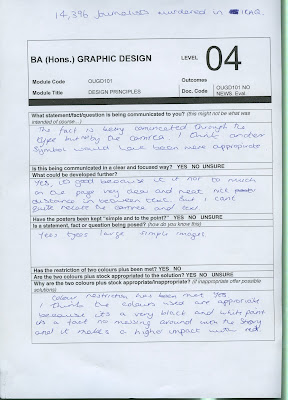 14,3% journalists murdered in IRAQ.
BA (Hons.) GRAPHIC DESIGN
LEVEL 04
Module Code OUGD101 Outcomes
Module Title DESIGN PRINCIPLES Doc. Code OUGD101 NO NEWS. Eval.
What statement/fact/question is being communicated to you? (this might not be what was
intended of course…)
The fact is being comunicated through the
type but the camera I think another
symbol would have been more appropriate
Is this being communicated in a clear and focused way? YES NO UNSURE
What could be developed further?
Yes, its good because it is not to much
on our page very clear and neat nice
distance in between text. But I cant
quite relate by camera and text
Have the posters been kept "simple and to the point?" YES NO UNSURE
Is a statement, fact or question being posed? (how do you know this)
Yes large simple images
Has the restriction of two colours plus been met? YES NO
Are the two colours plus stock appropriate to the solution? YES NO UNSURE
Why are the two colours plus stock appropriate/inappropriate? (if inappropriate offer possible
solutions)
Colour restriction has been met Yes
I think the colours used are appropriate
because its a very black and white point
its a fact no messing around with the story
and it makes a higher impact with red